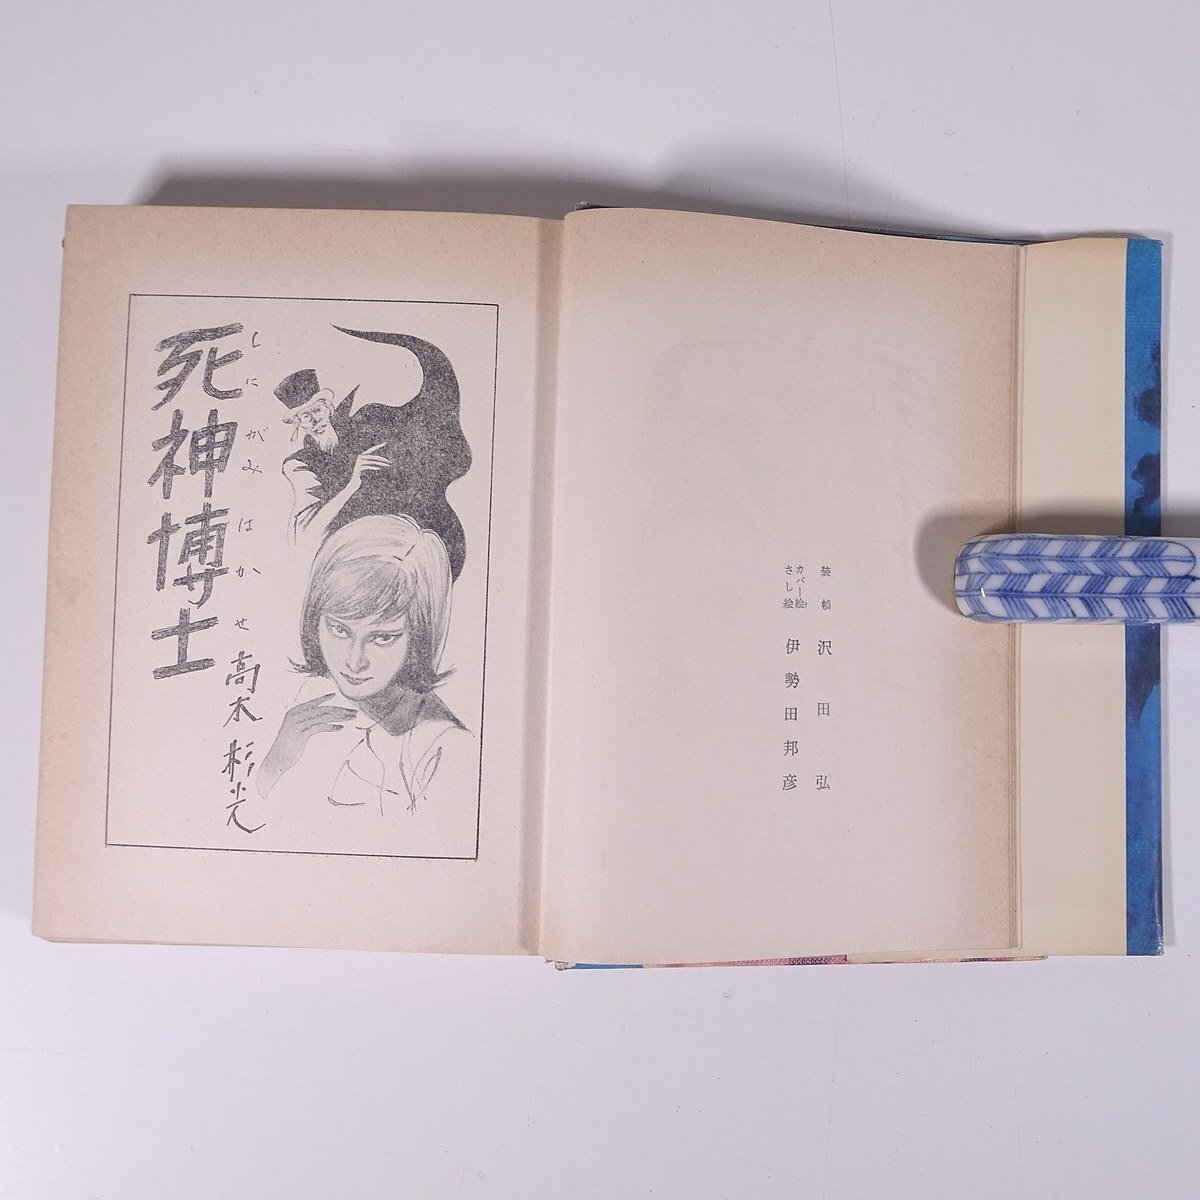 装幀 沢田弘
カバー絵
さし絵 伊勢田邦彦
しにがみはかせ
死神博士
高木彬光